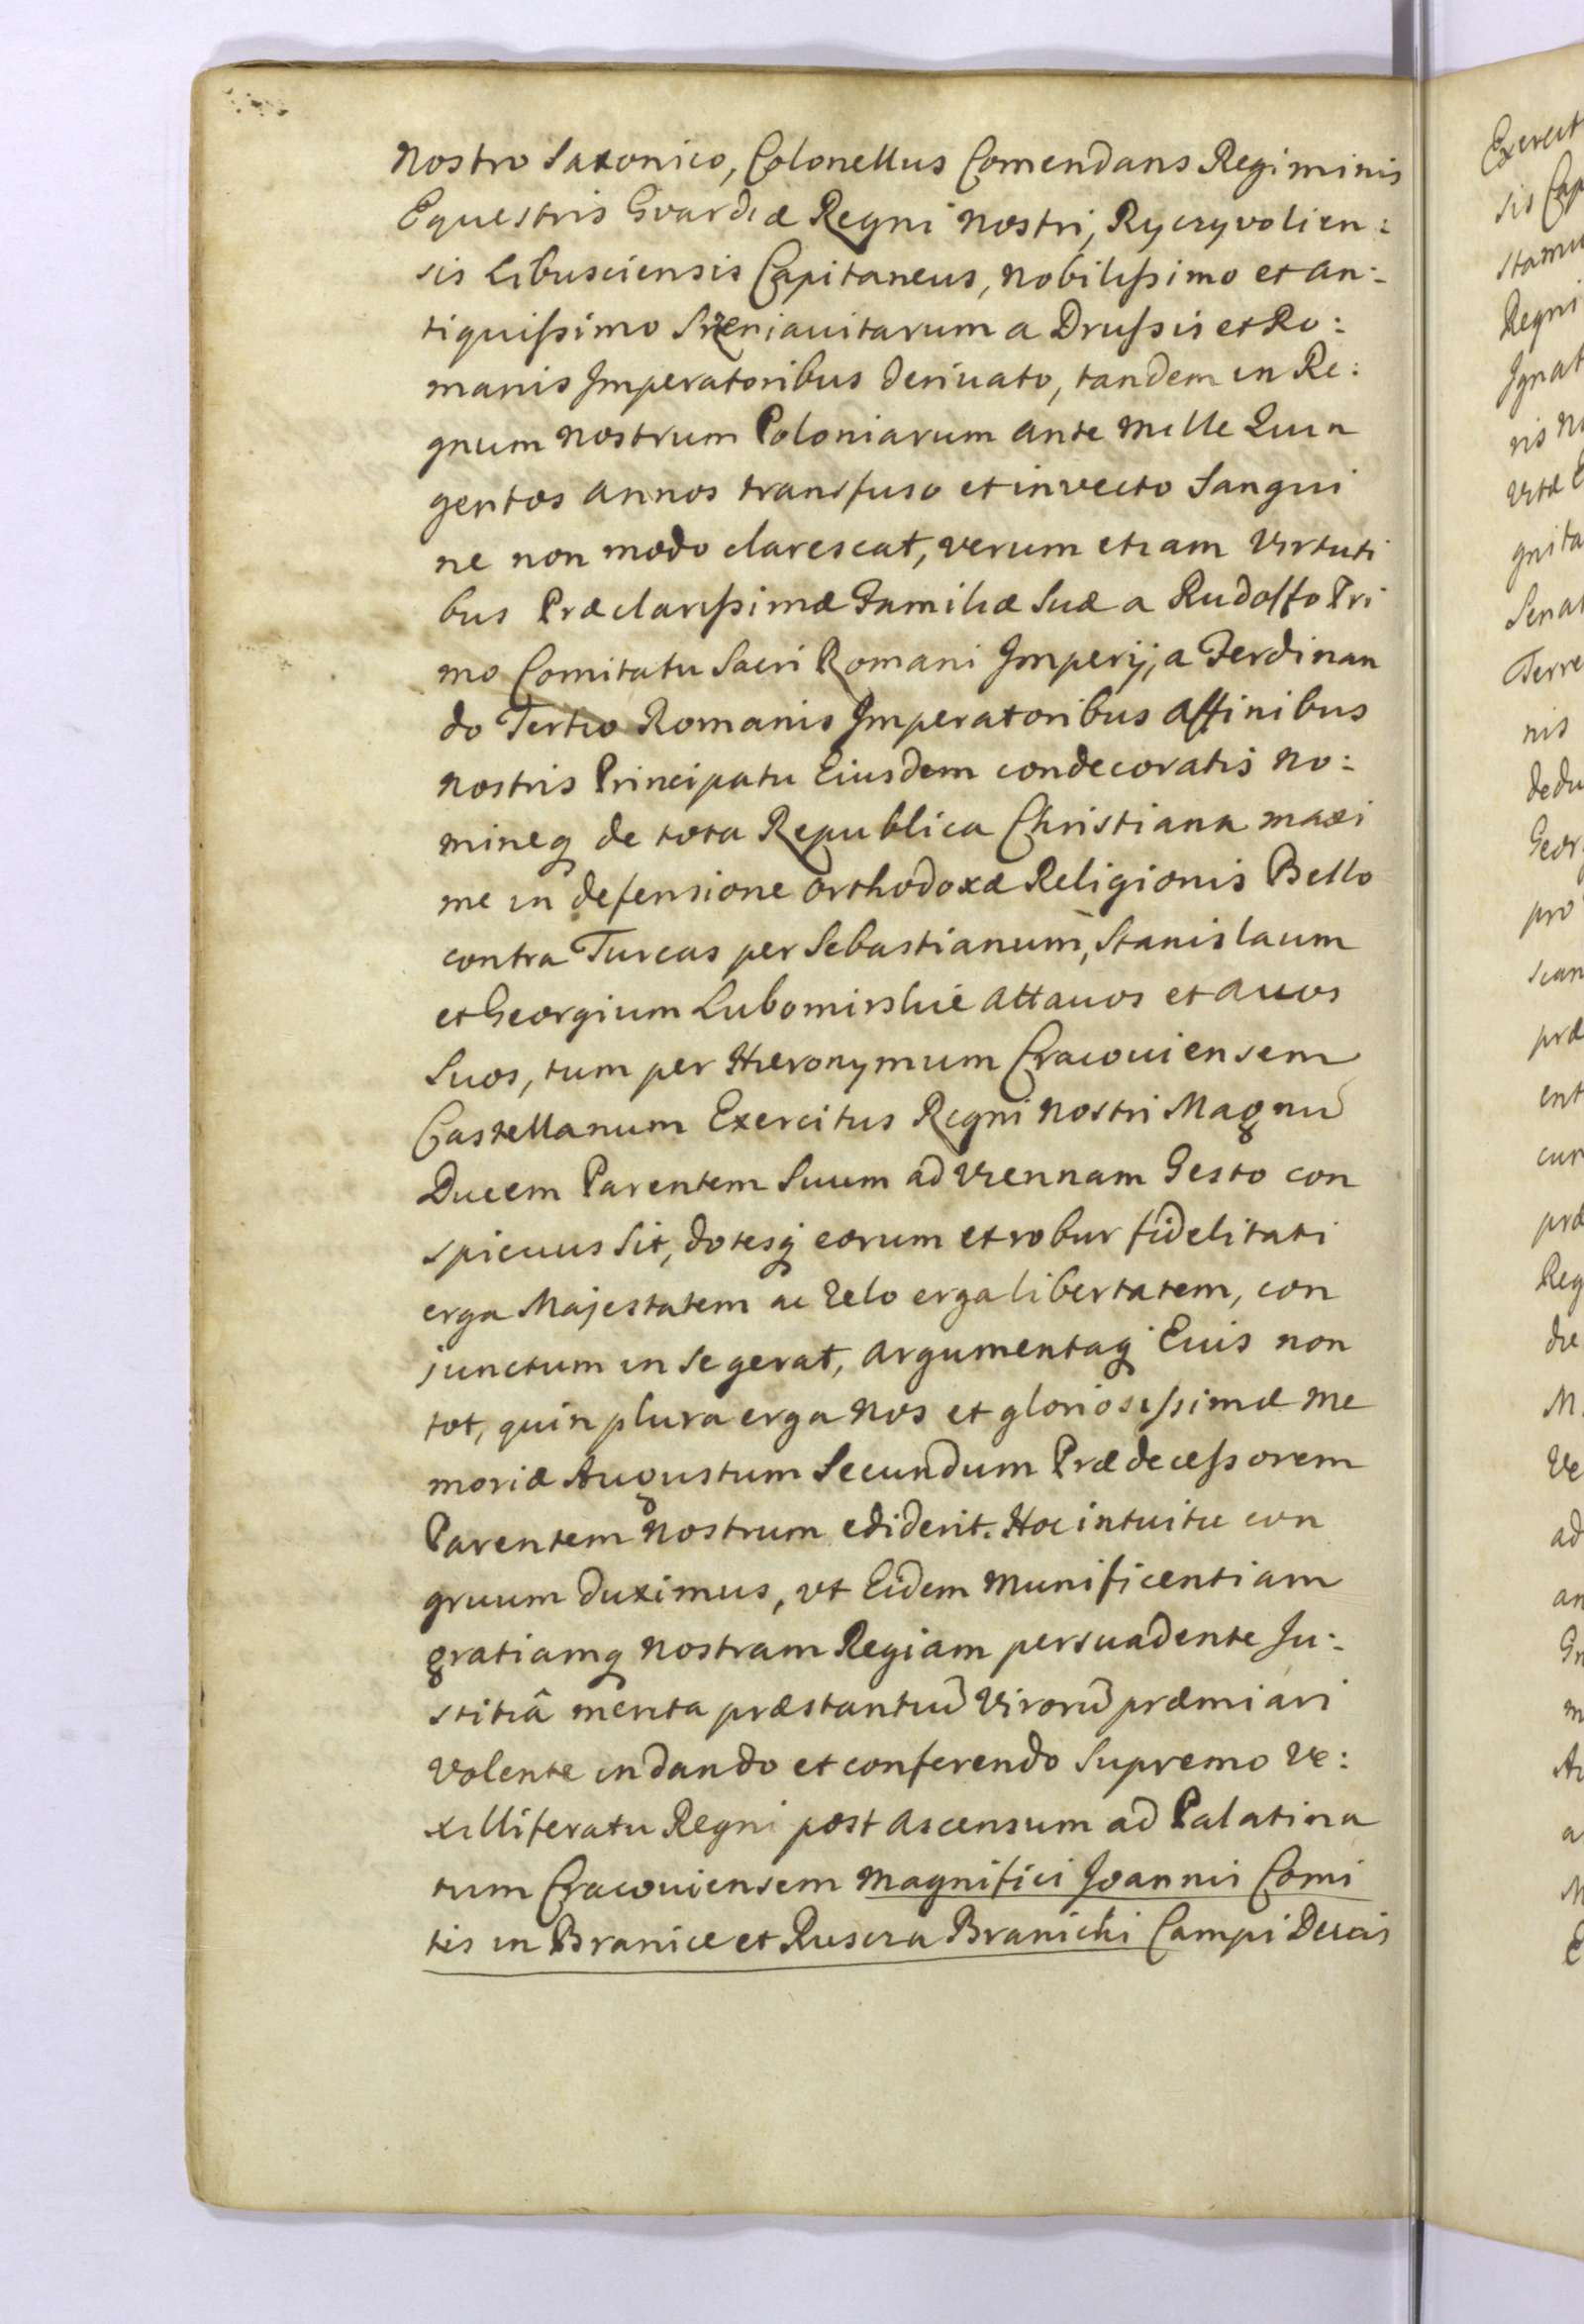 Nostro Saxonico, Colonellus Comendans Regiminis
Equestris Gvardiæ Regni Nostri, Ryczyvolien:
sis Libusciensis Capitaneus, Nobilissimo et an:
tiquissimo Srzeniavitarum a Drussis et Ro:
manis Imperatoribus derivato, tandem in Re:
gnum Nostrum Poloniarum ante Mille Quin
gentos annos transfuso et invecto Sangvi
ne non modo clarescat, verum etiam Virtuti
bus Præclarissimæ Familiæ Suæ a Rudolfo Pri
mo Comitatu Sacri Romani Imperij, a Ferdinan
do Tertio Romanis Imperatoribus Affinibus
Nostris Principatu Eiusdem condecoratis No:
mineq de tota Republica Christiana maxi
me in defensione orthodoxæ Religionis Bello
contra Turcas per Sebastianum, Stanislaum
et Georgium Lubomirskie Attavos et Avos
Suos, tum per Hieronymum Cracoviensem
Castellanum Exercitus Regni Nostri Magnũ
Ducem Parentem Suum ad Viennam Gesto con
spicuus Sit, dotesq eorum et robur fidelitati
erga Majestatem ac Zelo erga libertatem, con
junctum in se gerat, argumentaq Euis non
tot, quin plura erga Nos et gloriosissimæ Me
moriæ Augustum Secundum Prædecessorem
Parentem Nostrum ediderit. Hoc intuitu con
gruum duximus, ut Eidem Munificentiam
gratiamq Nostram Regiam persuadente Ju:
stitiâ merita præstantiũ Virorũ præmiari
Volente in dando et conferendo Supremo Ve:
xilliferatu Regni post ascensum ad Palatina
tum Cracoviensem Magnifici Joannis Comi
tis in Branice et Ruscza Branicki Campi Ducis
Exercit
sis Cap
Regni
Ignat
ris N
Vitæ E
gnita
Senat
Terre
nis
dedu
Geor
pro
præ
ent
cur
præ
Reg
die
M
Ve
ad
an
Gr
m
a
M
E